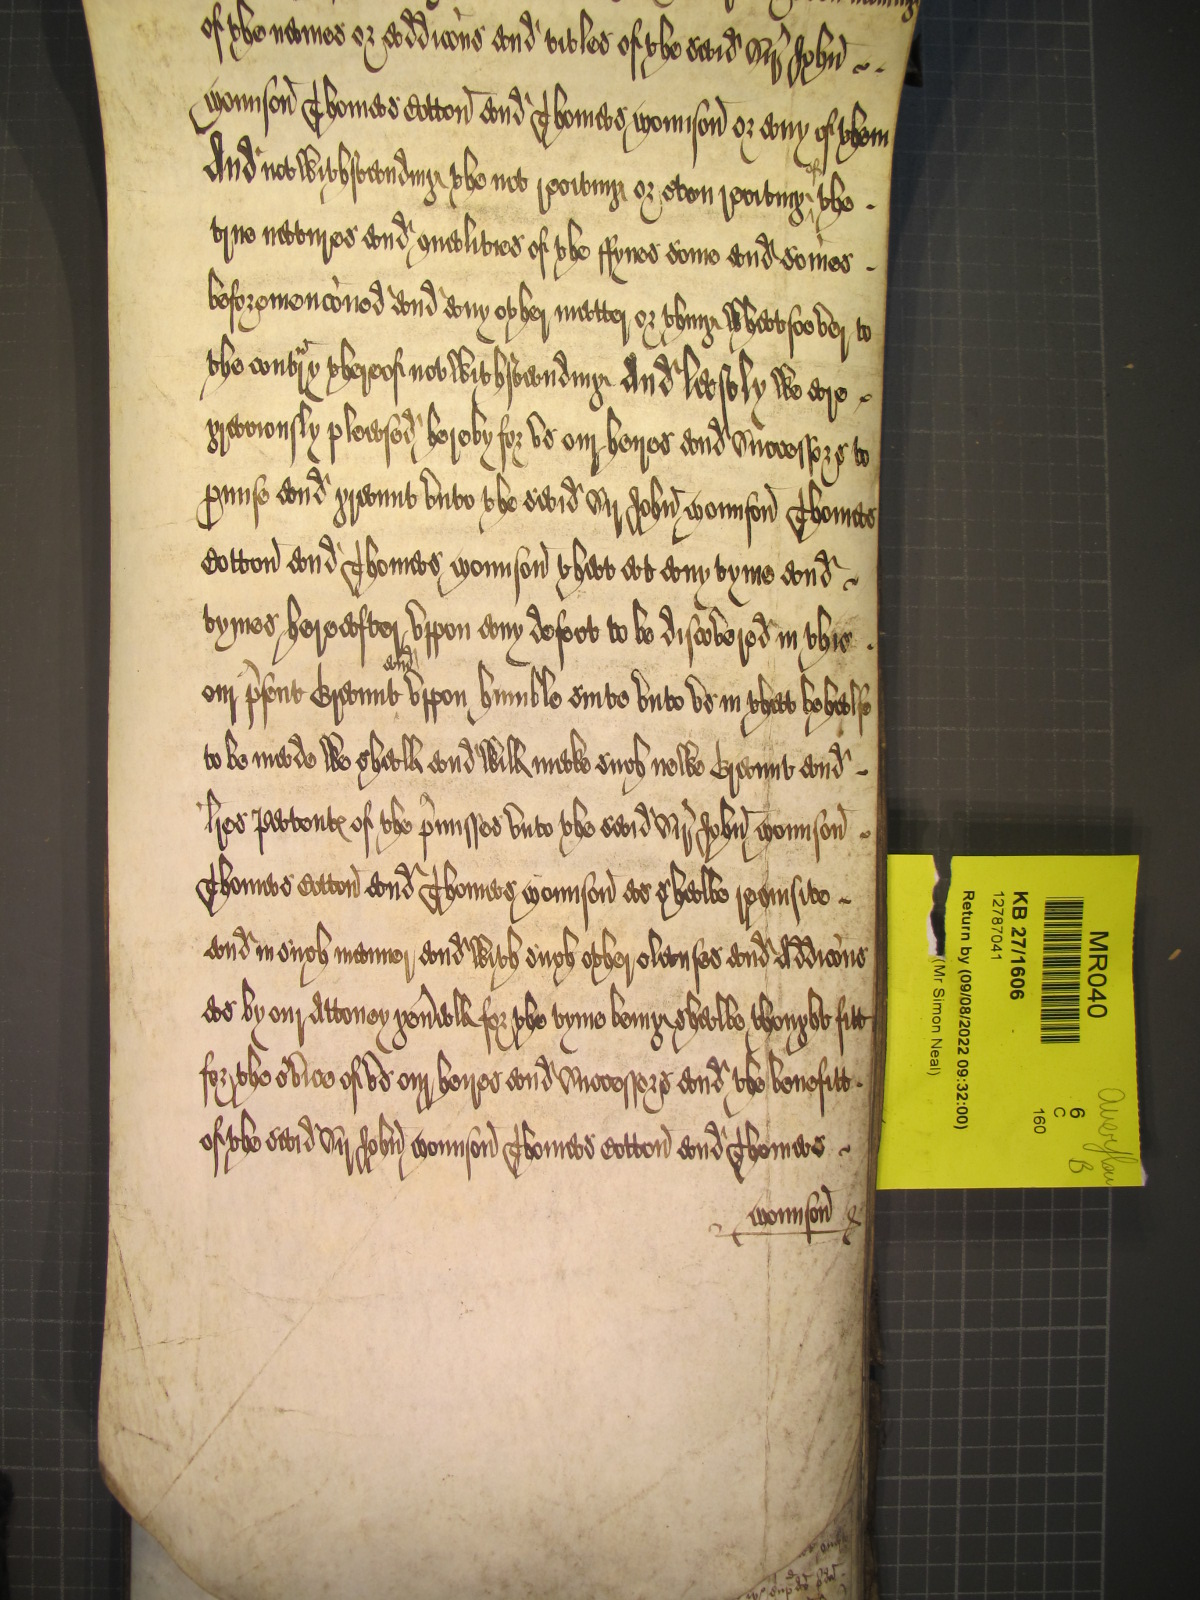 of the names or addic̃ons and titles of the said Sir John
Mounson Thomas Cotton and Thomas Mounson or any of them
And notwithstanding the not reciting or even reciting of the
true natures and qualities of the ffynes some and som̃es
beforemenc̃oned and any other matter or thing whatsoever to
the contrary thereof notwithstanding And lastly we are
graciously pleased hereby for vs our heires and Successors to
p̃mise and graunt vnto the said Sir John Mounson Thomas
Cotton and Thomas Mounson that att any tyme and
tymes hereafter vppon any defect to be discovered in this
our p̃sent Graunt and vppon humble suite vnto vs in that behalfe
to be made We shall and will make such newe Graunt and
l̃res Patents of the p̃misses vnto the said Sir John Mounson
Thomas Cotton and Thomas Mounson as shalbe requisite
and in such manner and with such other clauses and Addic̃ons
as by our Attorney gen̄all for the tyme being shalbe thought fitt
for the s̃vice of vs our heires and Successors and the benefitt
of the said Sir John Mounson Thomas Cotton and Thomas
Mounson
MR040
KB 27/1606
12787041
Return by (09/08/2022 09:32:00)
(Mr Simon Neal)
6
C
160
B